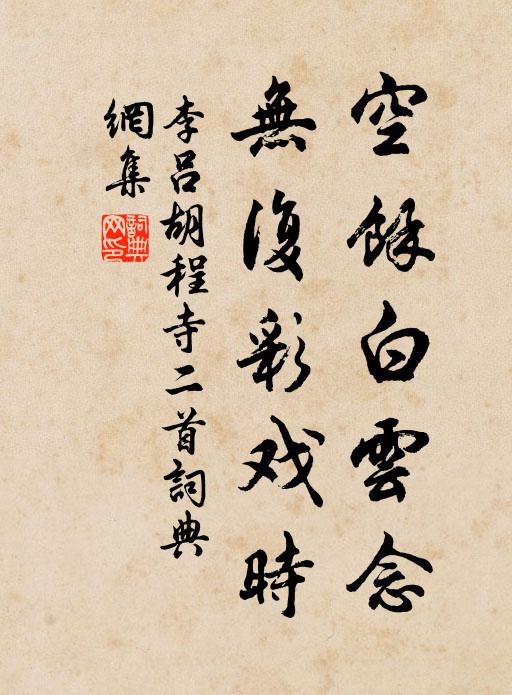 空餘白雲念
無復彩戏時
李呂胡程寺二首詞典
網集
詞典
网印